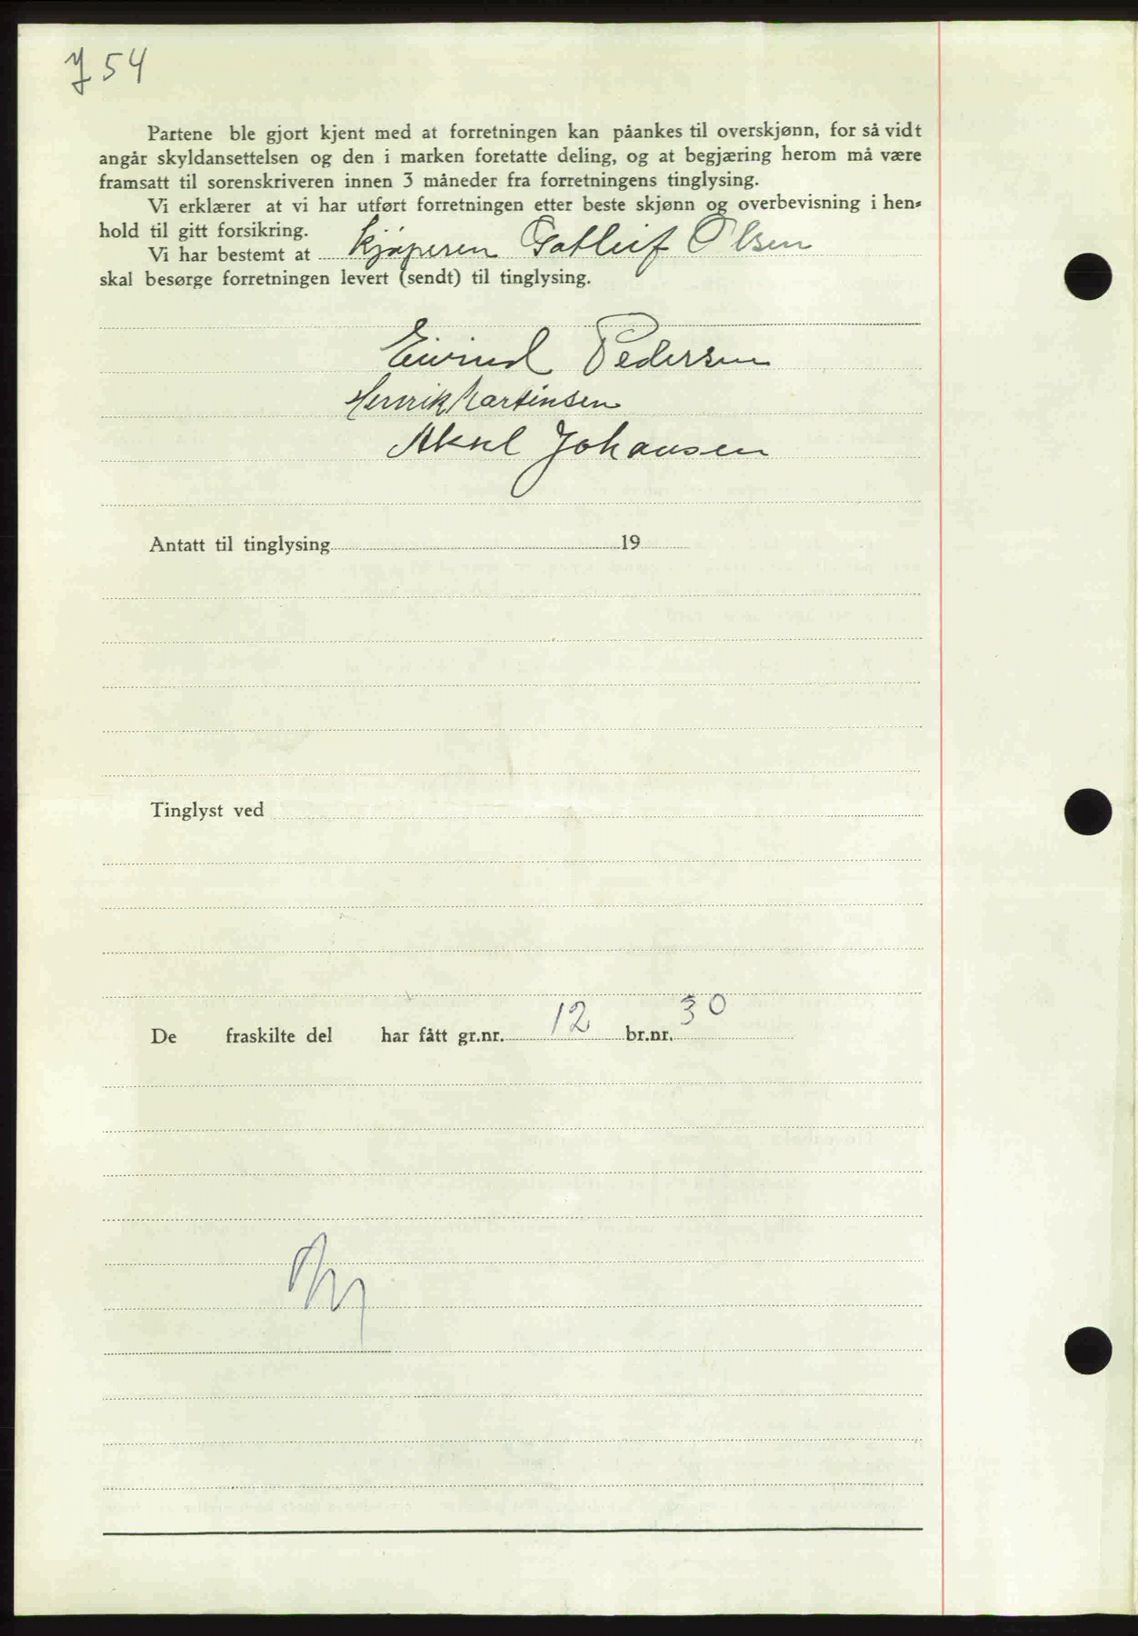 754
Partene ble gjort kjent med at forretningen kan påankes til overskjønn, for så vidt
angår skyldansettelsen og den i marken foretatte deling, og at begjæring herom må være
framsatt til sorenskriveren innen 3 måneder fra forretningens tinglysing.
Vi erklærer at vi har utført forretningen etter beste skjønn og overbevisning i hen-
hold til gitt forsikring.
Vi har bestemt at kjøperen Gotleif Olsen
skal besørge forretningen levert (sendt) til tinglysing.
Eivind Pedersen
Henrik Martinsen
Aksel Johansen
Antatt til tinglysing 19
Tinglyst ved
De fraskilte del har fått gr.nr. 12 br.nr. 30